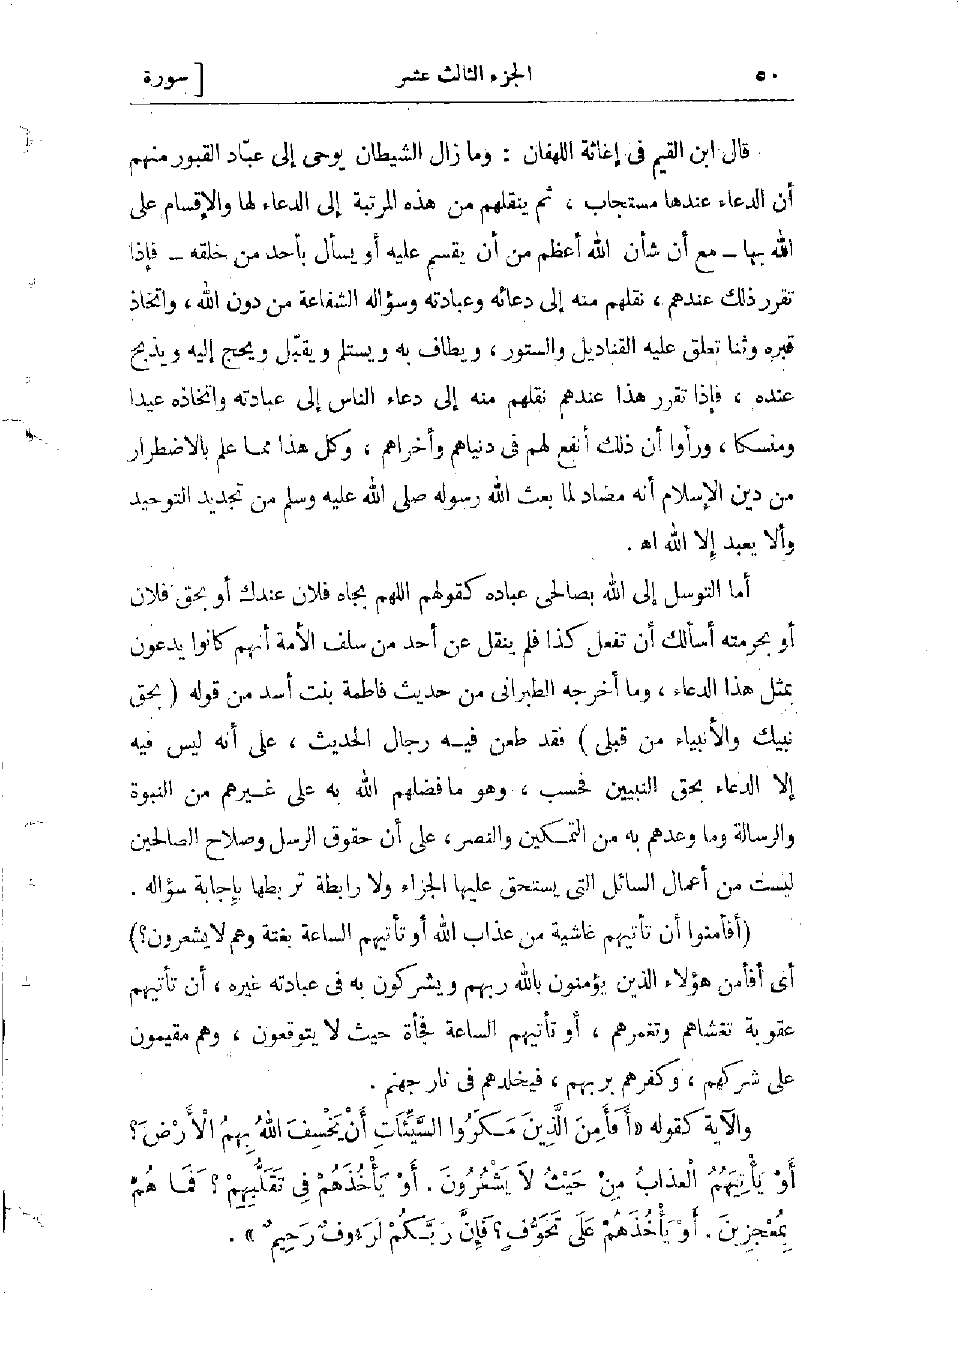 ٥٠ الجزء الثالث عشر [ سورة
قال ابن القيم فى إغاثة اللهفان : وما زال الشيطان يوحى إلى عبّاد القبور منهم
أن الدعاء عندها مستجاب ، ثم ينقلهم من هذه المرتبة إلى الدعاء لها والإقسام على
الله بها – مع أن شأن الله أعظم من أن يقسم عليه أو يسأل بأحد من خلقه – فإذا
تقرر ذلك عندهم ، نقلهم منه إلى دعائه وعبادته وسؤاله الشفاعة من دون الله ، واتخاذ
قبره وثنا تعلق عليه القناديل والستور ، ويطاف به ويستلم ويقبّل ويحج إليه ويذبح
عنده ، فإذا تقرر هذا عندهم نقلهم منه إلى دعاء الناس إلى عبادته واتخاذه عيدا
ومنسكا ، ورأوا أن ذلك أنفع لهم فى دنياهم وأخراهم ، وكل هذا مما علم بالاضطرار
من دين الإسلام أنه مضاد لما بعث الله رسوله صلى الله عليه وسلم من تجديد التوحيد
وألا يعبد إلا الله اه .
أما التوسل إلى الله بصالحى عباده كقولهم اللهم بجاه فلان عندك أو بحق فلان
أو بحرمته أسألك أن تفعل كذا فلم ينقل عن أحد من سلف الأمة أنهم كانوا يدعون
بمثل هذا الدعاء ، وما أخرجه الطبرانى من حديث فاطمة بنت أسد من قوله ( بحق
نبيك والأنبياء من قبلى ) فقد طعن فيه رجال الحديث ، على أنه ليس فيه
إلا الدعاء بحق النبيين فحسب ، وهو ما فضلهم الله به على غيرهم من النبوة
والرسالة وما وعدهم به من التمكين والنصر ، على أن حقوق الرسل وصلاح الصالحين
ليست من أعمال السائل التى يستحق عليها الجزاء ولا رابطة تربطها بإجابة سؤاله .
(أفأمنوا أن تأتيهم غاشية من عذاب الله أو تأتيهم الساعة بغتة وهم لا يشعرون؟)
أى أفأمن هؤلاء الذين يؤمنون بالله ربهم ويشركون به فى عبادته غيره ، أن تأتيهم
عقوبة تغشاهم وتغمرهم ، أو تأتيهم الساعة فجأة حيث لا يتوقعون ، وهم مقيمون
على شركهم ، وكفرهم بربهم ، فيخلدهم فى نار جهنم .
والآية كقوله «أَفَأَمِنَ الَّذِينَ مَكَرُوا السَّيِّئَاتِ أَنْ يَخْسِفَ اللهُ بِهِمُ الْأَرْضَ؟
أَوْ يَأْتِيَهُمُ الْعَذَابُ مِنْ حَيْثُ لاَ يَشْعُرُونَ . أَوْ يَأْخُذَهُمْ فِى تَقَلُّبِهِمْ ؟ فَمَا هُمْ
بِمُعْجِزِينَ . أَوْ يَأْخُذَهُمْ عَلَى تَخَوُّفٍ ؟ فَإِنَّ رَبَّكُمْ لَرَءُوفٌ رَحِيمٌ » .